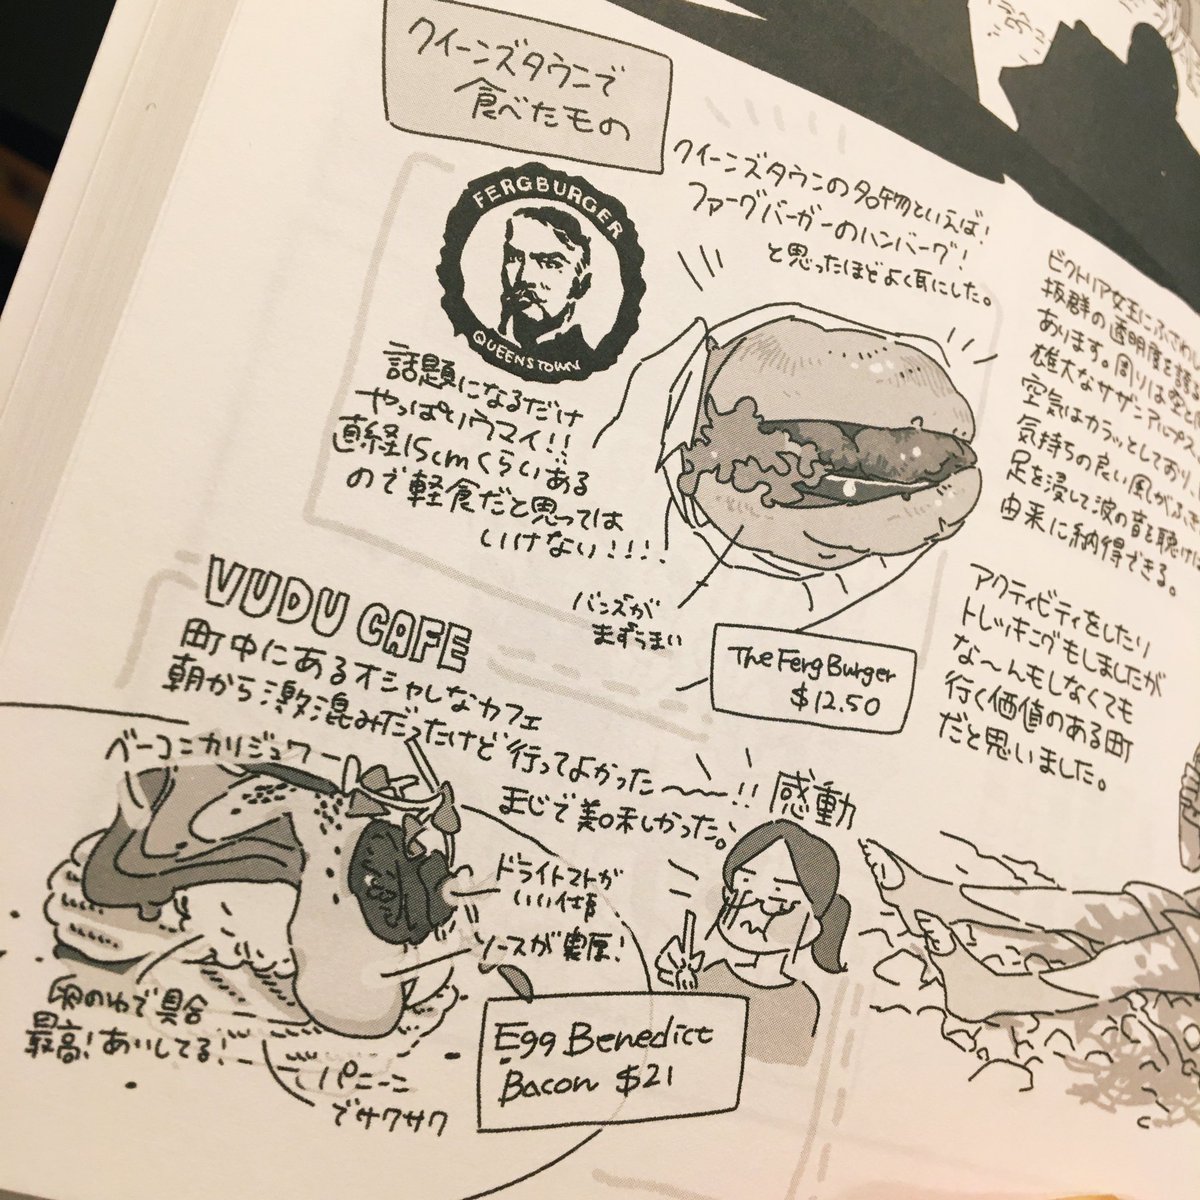 クイーンズタウンで
食べたもの
クイーンズタウンの名物といえば!
ファーグバーガーのハンバーグ!
と思ったほどよく耳にした。
FERGBURGER
QUEENSTOWN
話題になるだけ
やっぱりウマイ!!
直経15cmくらいある
ので軽食だと思っては
いけない!!!!
バンズが
まずうまい
The Ferg Burger
$12.50
ビクトリア女王にふさわし
抜群の透明度を誇
あります。周りは空と
雄大なサザンアルプス
空気はカラッとしており、
気持ちの良い風がふ
足を浸して波の音を聴けば
由来に納得できる。
アクティビティをしたり
トレッキングもしましたが
な〜んもしなくても
行く価値のある町
だと思いました。
VUDU CAFE
町中にあるオシャレなカフェ
朝から激混みだったけど行ってよかった〜〜!!
まじで美味しかった。
感動
ベーコンカリジュワー
ドライトマトが
いい仕事
ソースが濃厚!
卵のゆで具合
最高!あいしてる!
パニーニ
でサクサク
Egg Benedict
Bacon $21